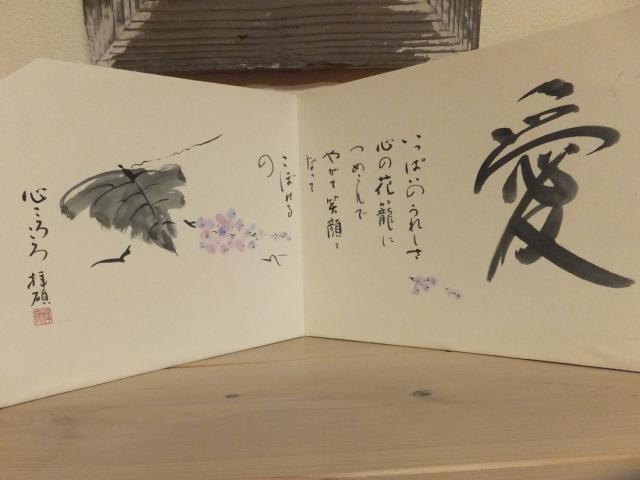 愛
いっぱいのうれしさ
心の花籠に
つめこんで
やがて笑顔に
なって
こぼれる
の
心ころころ